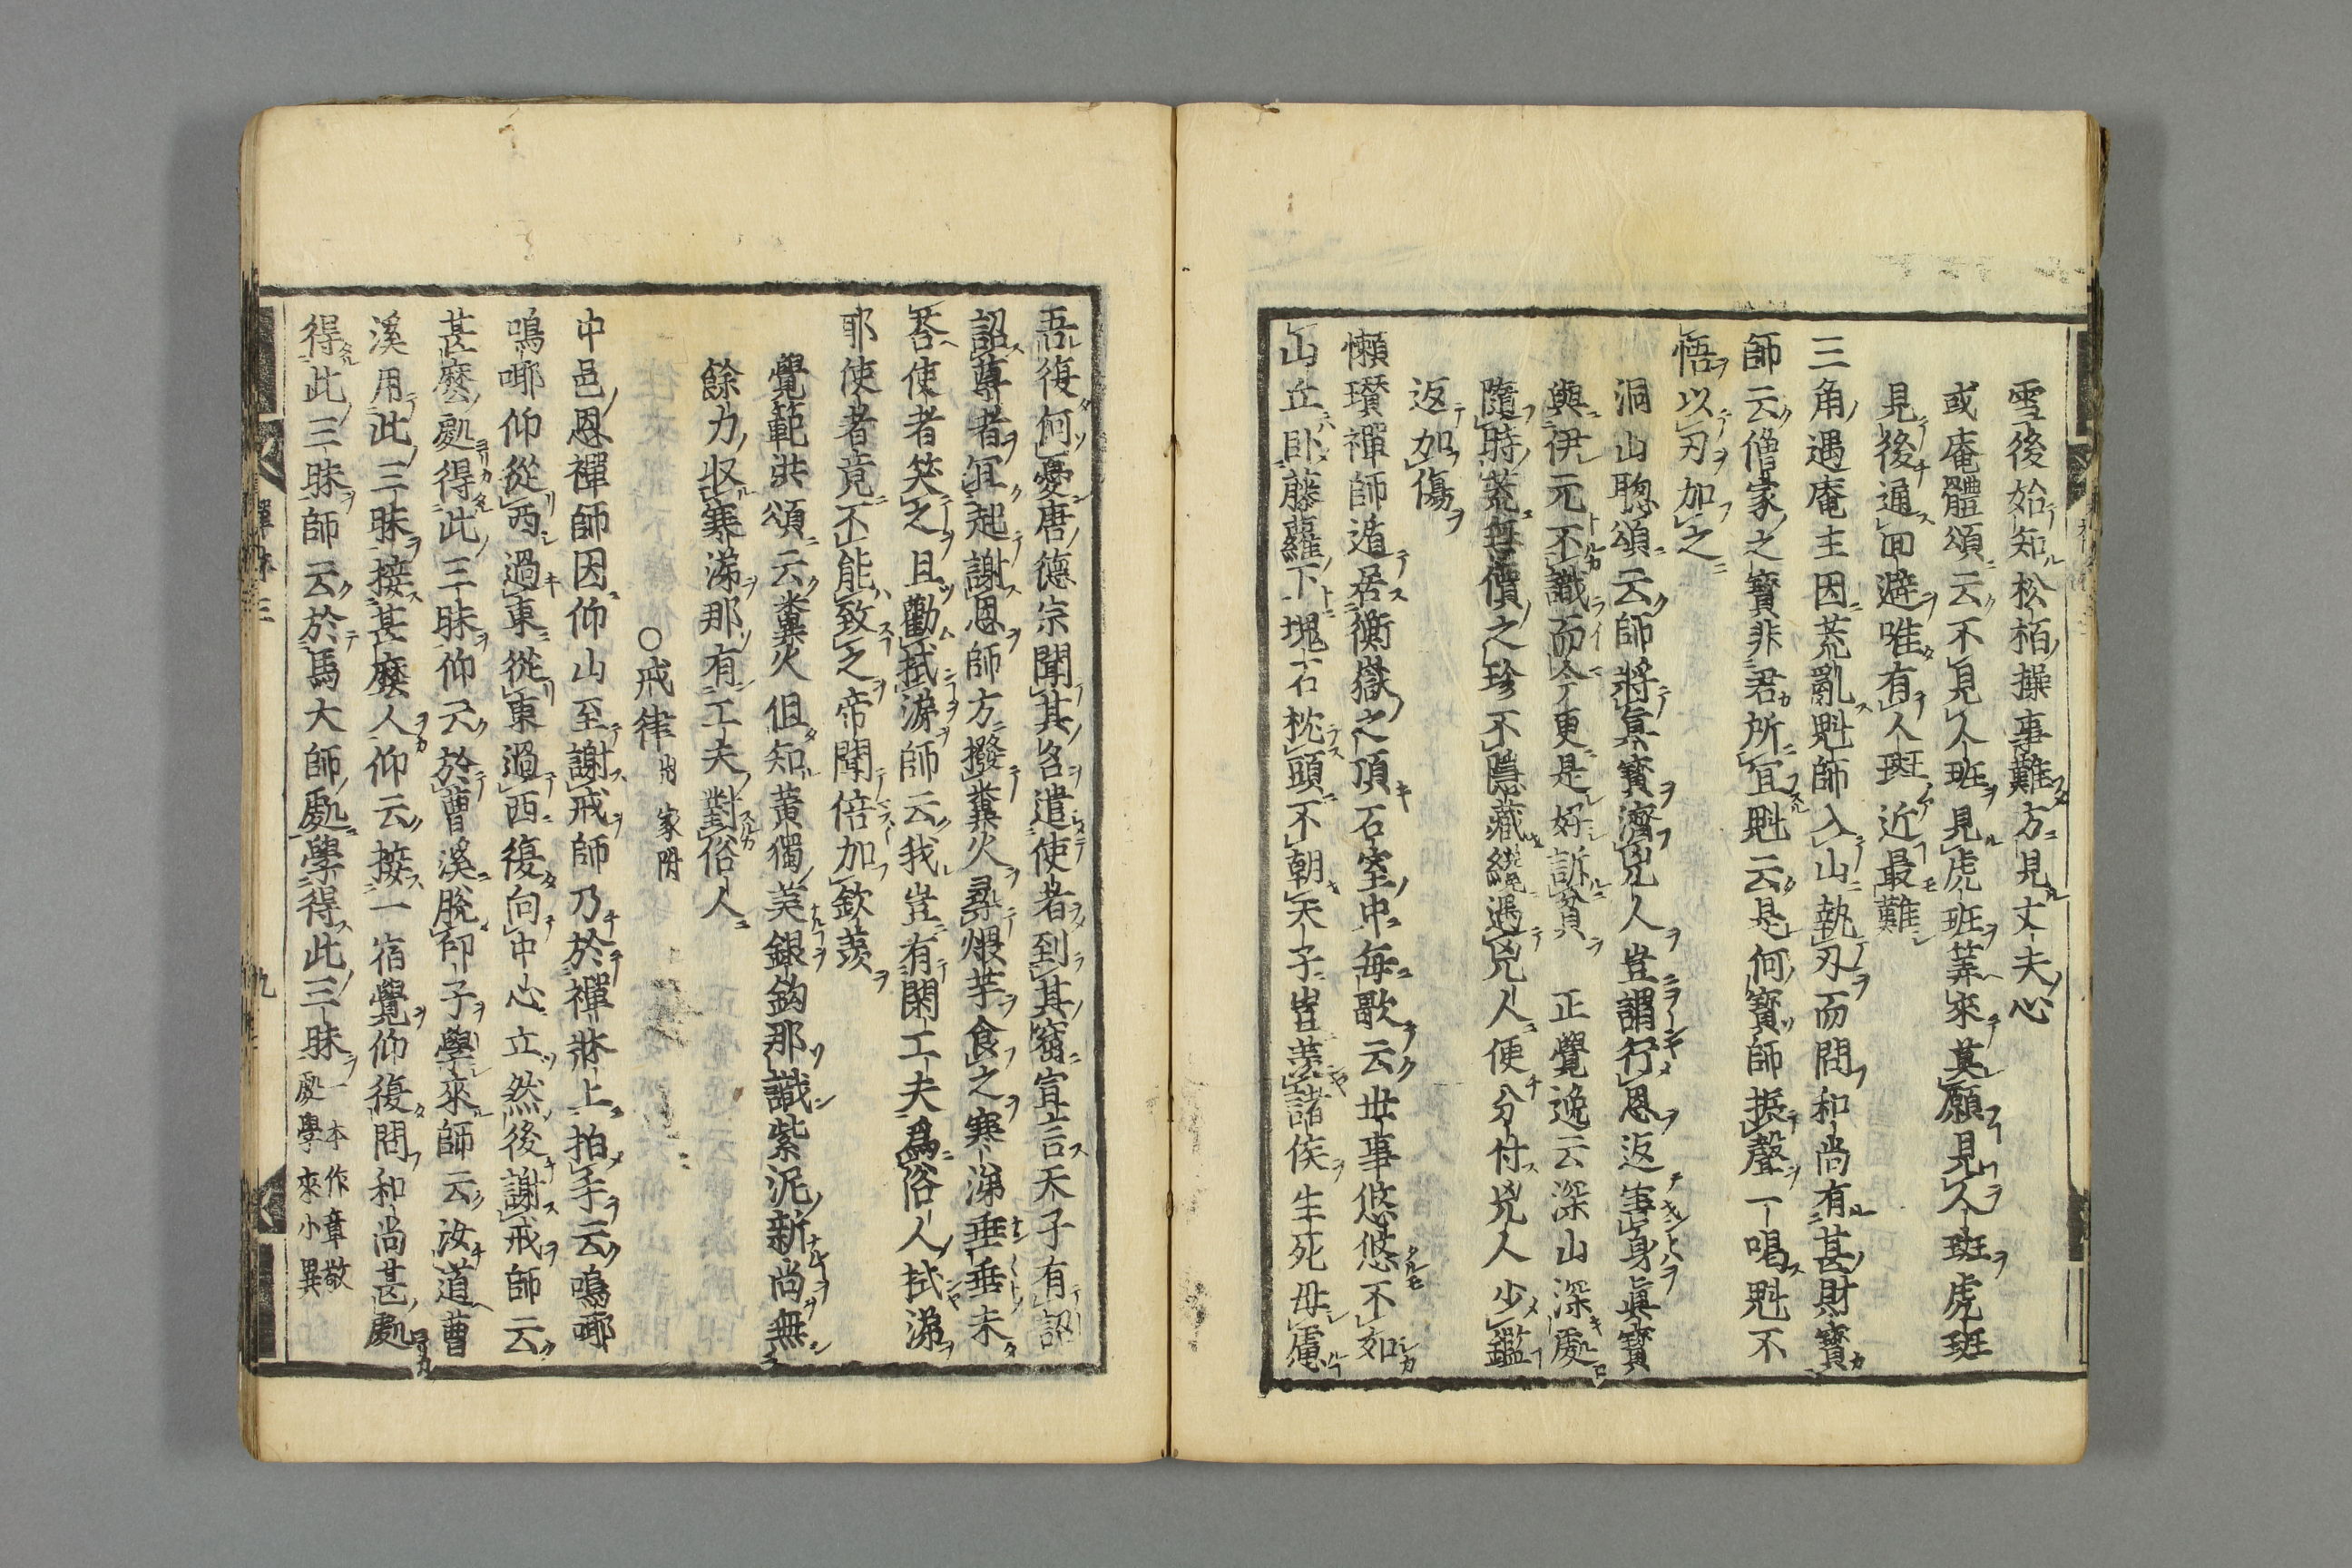 雪後始知松栢操事難方見丈夫心
或庵體頌云不見人班見虎班莾來莫願見人班虎班
見後通回避唯有人班近最難
三角遇庵主因荒亂魁師入山執刃而問和尚有甚財寶
師云僧家之寶非君所宜魁云是何寶師振聲一喝魁不
悟以刃加之
洞山聰頌云師將眞寶濟兇人豈謂行恩返害身眞寶
與伊元不識而今更是好訴貧 正覺逸云深山深處
隨時荒無價之珍不隱藏纔遇兇人便分付兇人少鑑
返加傷
懶瓚禪師遁居衡嶽之頂石室中每歌云世事悠悠不如
山丘臥藤蘿下塊石枕頭不朝天子豈羨諸侯生死毋慮
吾復何憂唐德宗聞其名遣使者到其窟宣言天子有詔
詔尊者宜起謝恩師方撥糞火尋煨芋食之寒涕垂垂未
答使者笑之且勸拭涕師云我豈有閑工夫爲俗人拭涕
耶使者竟不能致之帝聞倍加欽羨
覺範洪頌云糞火但知黃獨美銀鈎那識紫泥新尚無
餘力収寒涕那有工夫對俗人
〇戒律 出家附
中邑恩禪師因仰山至謝戒師乃於禪牀上拍手云嗚㖿
嗚㖿仰從西過東從東過西復向中心立然後謝戒師云
甚麼處得此三昧仰云於曹溪脫印子學來師云汝道曹
溪用此三昧接甚麼人仰云接一宿覺仰復問和尚甚處
得此三昧師云於馬大師處學得此三昧 一本作章敬處學來小異
禪 三
九